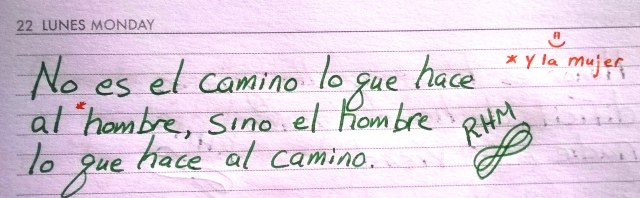 22 LUNES MONDAY
No es el camino lo que hace
* y la mujer
al *hombre, sino el hombre
RHM
lo que hace al camino.